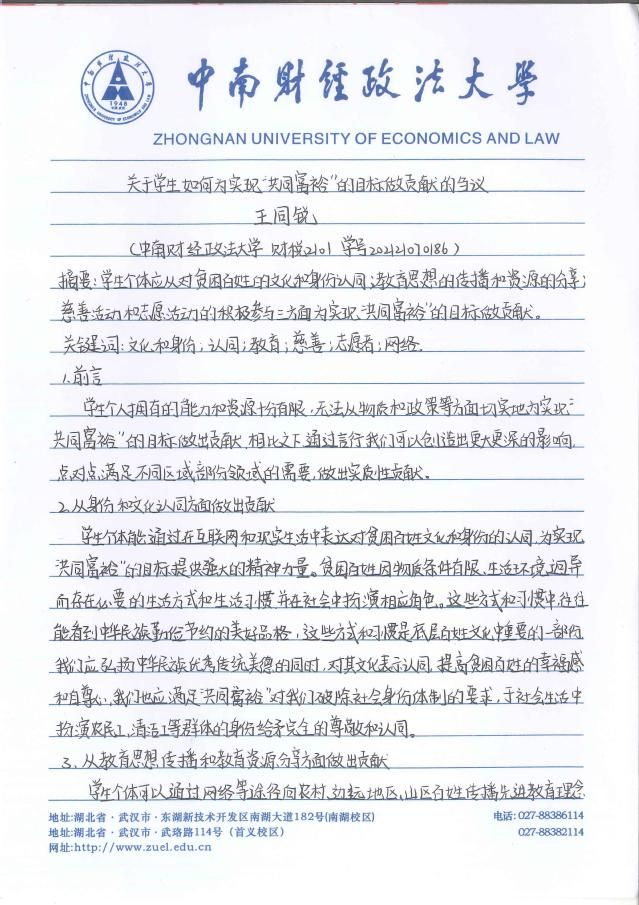 中南财经政法大学
ZHONGNAN UNIVERSITY OF ECONOMICS AND LAW
1948
关于学生如何为实现“共同富裕”的目标做贡献的刍议
王同锐
(中南财经政法大学 财税2101 学号202121070186)
摘要:学生个体应从对贫困百姓的文化和身份认同;教育思想的传播和资源的分享;
慈善活动和志愿活动的积极参与三方面为实现“共同富裕”的目标做贡献。
关键词:文化和身份;认同;教育;慈善;志愿者;网络.
1.前言
学生个人拥有的能力和资源十分有限,无法从物质和政策等方面切实地为实现“
共同富裕”的目标做出贡献,相比之下,通过言行我们可以创造出更大更深的影响,
点对点满足不同区域部份领域的需要,做出实质性贡献.
2.从身份和文化认同方面做出贡献
学生个体能通过在互联网和现实生活中表达对贫困百姓文化和身份的认同,为实现
“共同富裕”的目标提供强大的精神力量。贫困百姓因物质条件有限、生活环境迥异
而存在必要的生活方式和生活习惯并在社会中扮演相应角色。这些方式和习惯中往往
能看到中华民族勤俭节约的美好品格,这些方式和习惯是底层百姓文化中重要的一部份
我们应弘扬中华民族优秀传统美德的同时,对其文化表示认同,提高贫困百姓的幸福感
和自尊心,我们也应满足“共同富裕”对我们破除社会身份体制的要求,于社会生活中
扮演农民工、清洁工等群体的身份给予完全的尊敬和认同。
3.从教育思想传播和教育资源分享方面做出贡献
学生个体可以通过网络等途径向农村、边远地区、山区百姓传播先进教育理念
地址:湖北省·武汉市·东湖新技术开发区南湖大道182号(南湖校区) 电话:027-88386114
地址:湖北省·武汉市·武珞路114号(首义校区) 027-88382114
网址:http://www.zuel.edu.cn